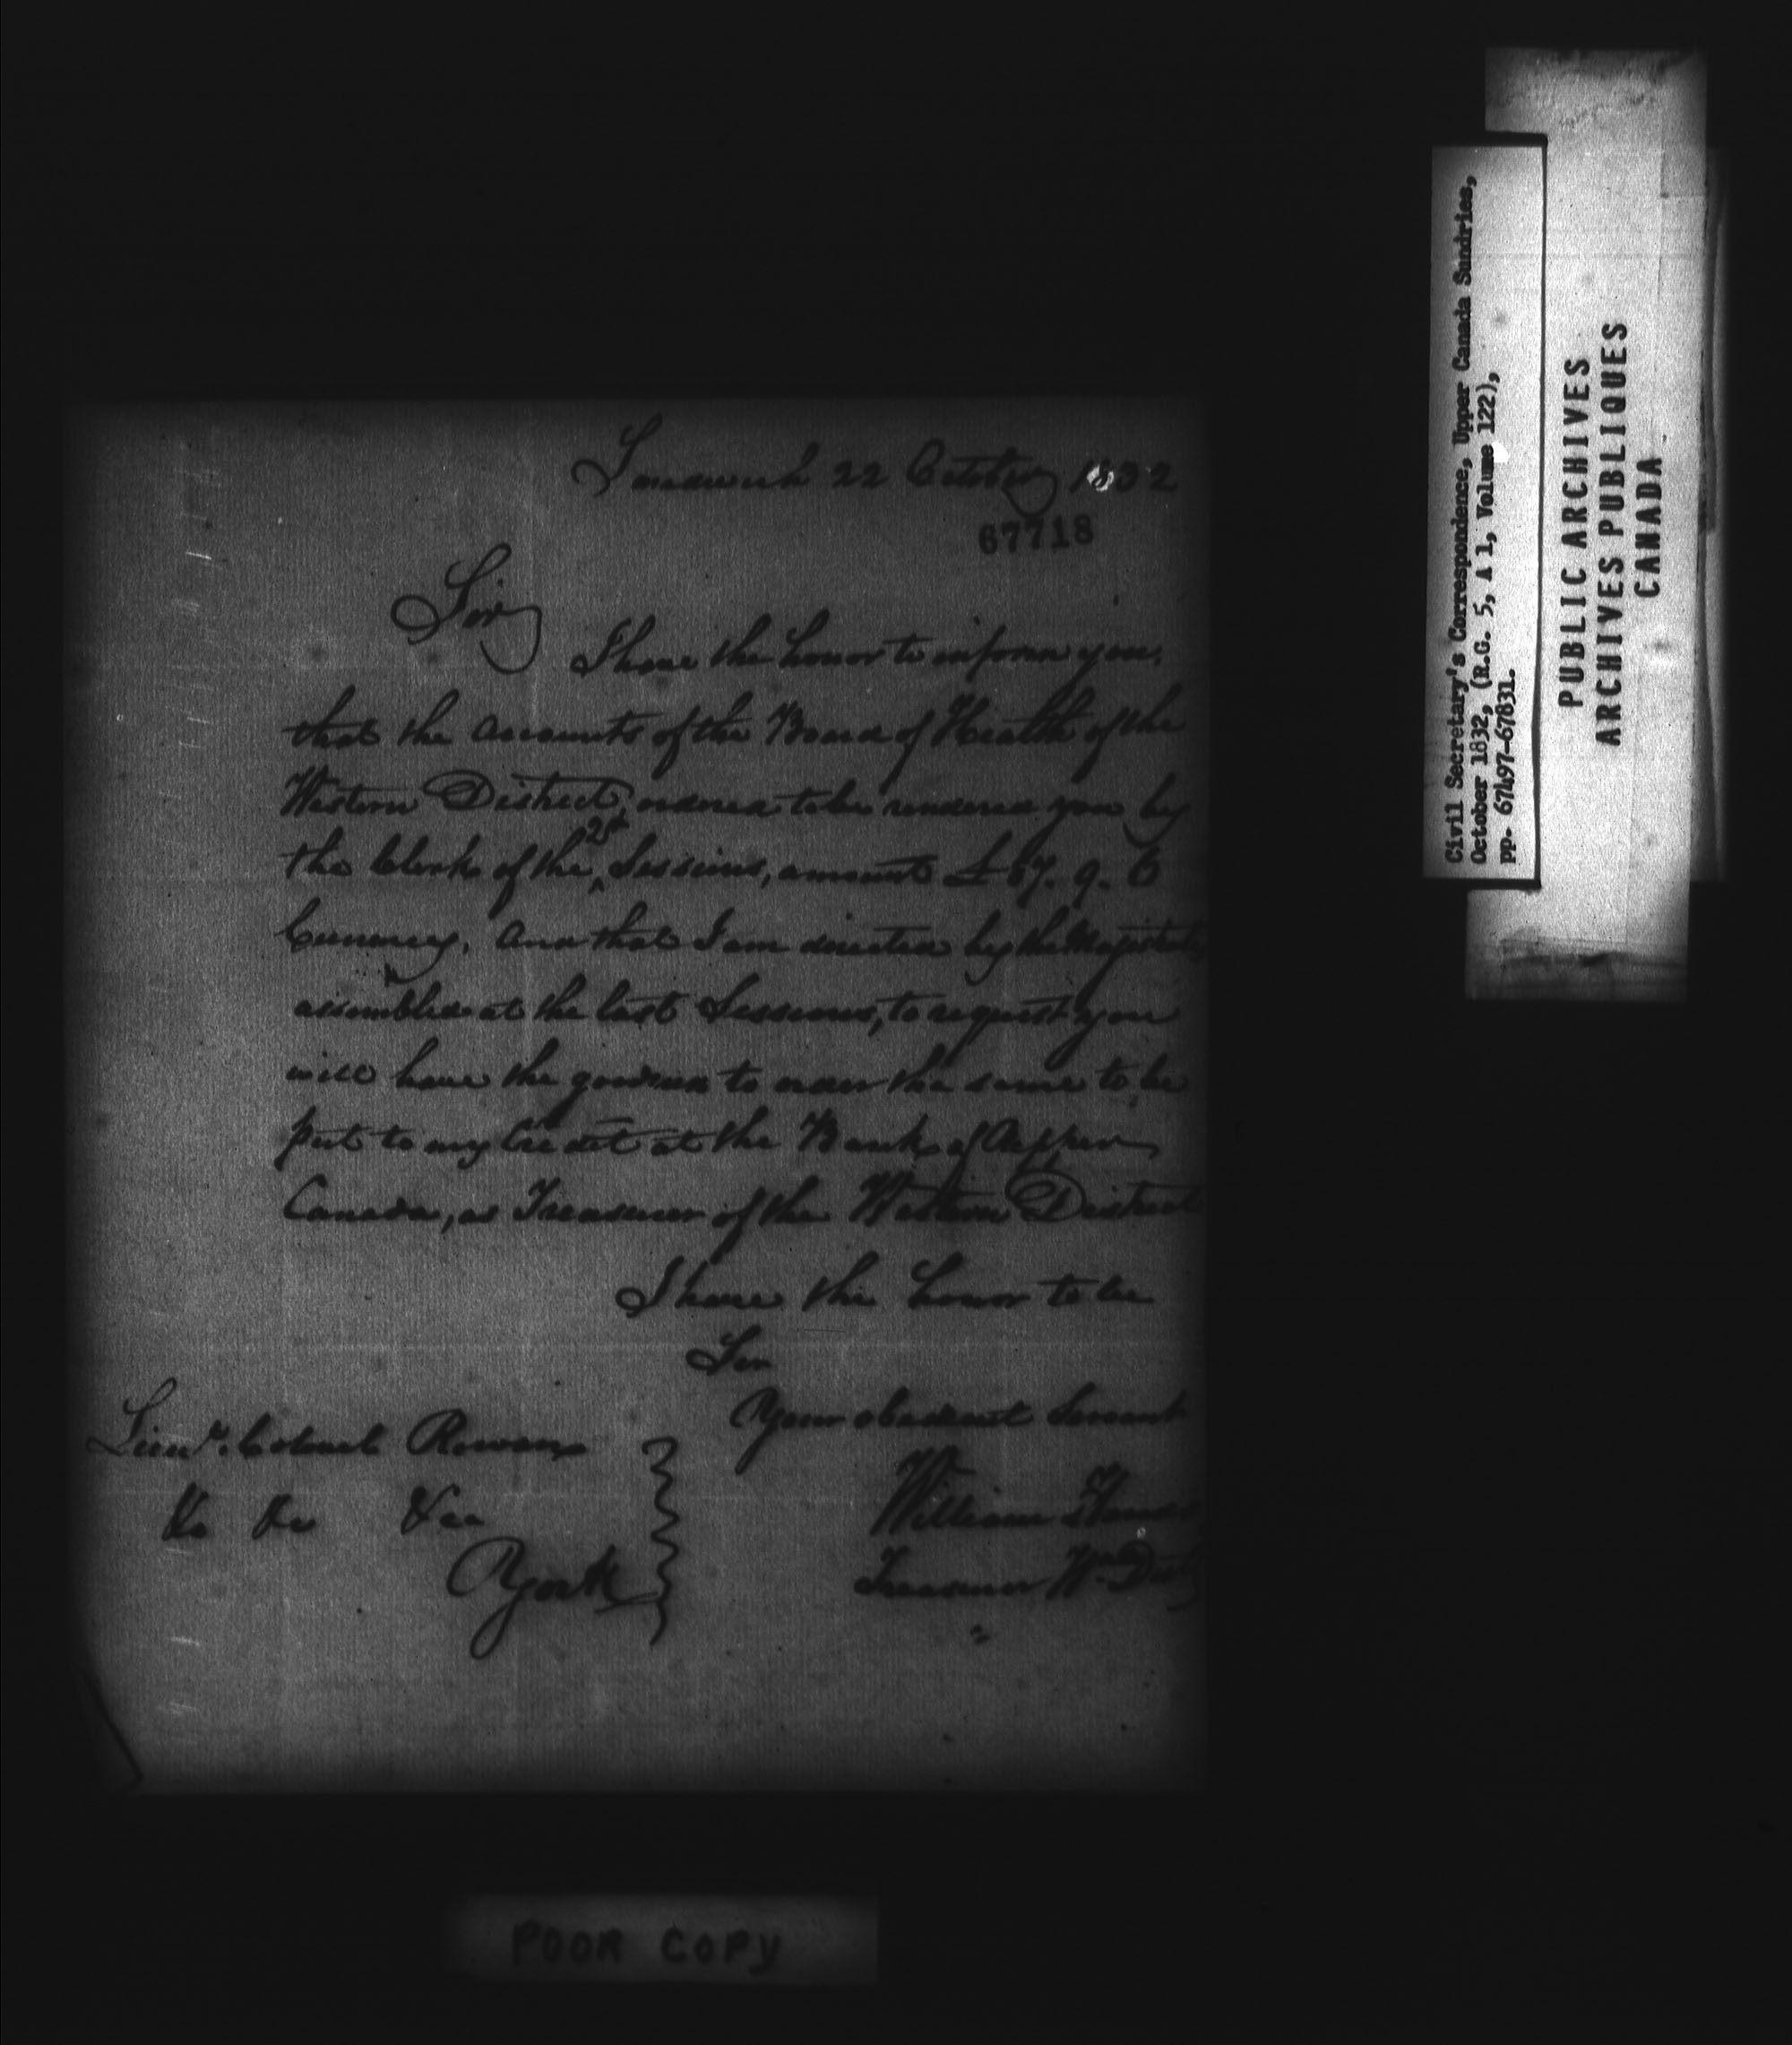 Sandwich 22 October 1832
67718
Sir
I have the honor to inform you,
that the accounts of the Board of Health of the
Western District, ordered to be rendered you by
the Clerk of the Sessions, amount £ 67. 9. 6
Currency. And that I am directed by the Magistrates
assembled at the last Sessions, to request you
will have the goodness to order the same to be
put to my Credit at the Bank of Upper
Canada, as Treasurer of the Western District
I have the honor to be
Sir
Your obedient Servant
William Hands
Treasurer W. Dist
Lieut. Colonel Rowan
&c &c &cc
York
POOR COPY
Civil Secretary's Correspondence, Upper Canada Sundries,
October 1832, (R.G. 5, A 1, Volume 122),
pp. 67497-67831.
PUBLIC ARCHIVES
ARCHIVES PUBLIQUES
CANADA